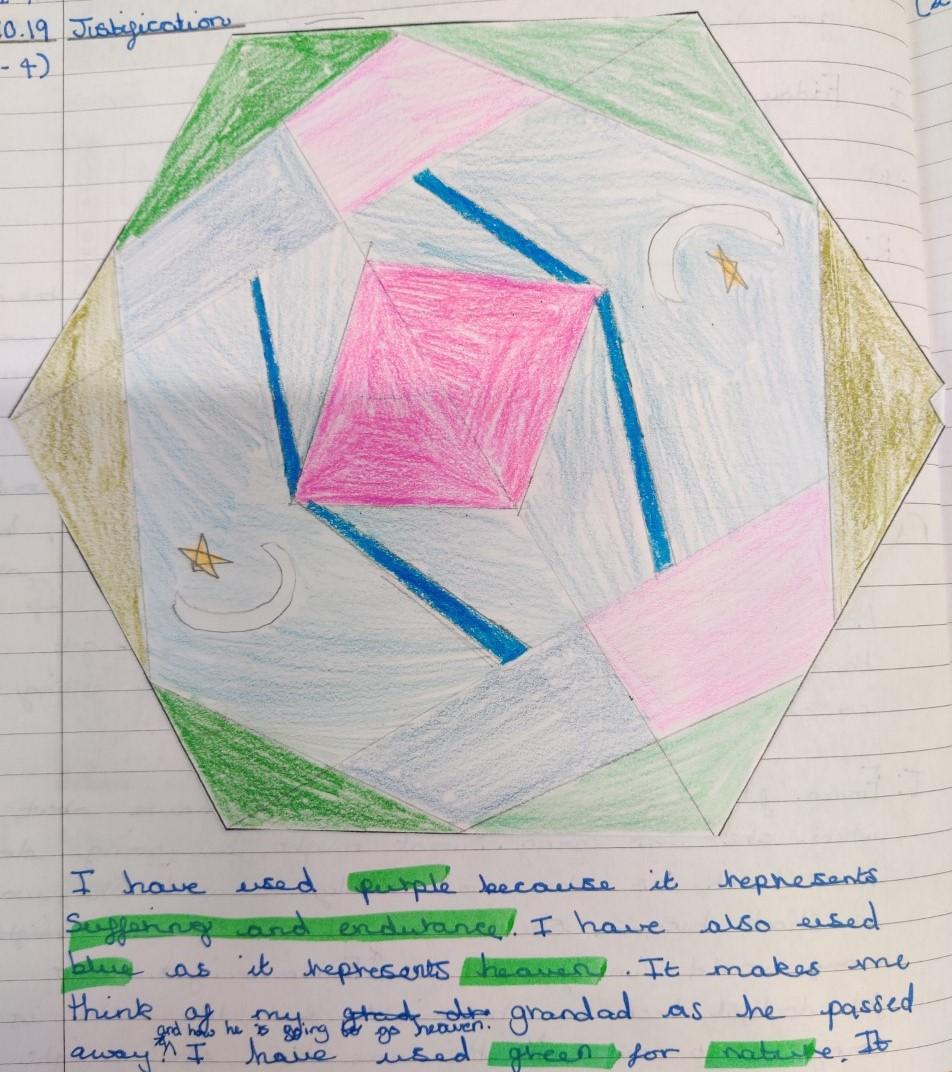 0.19 Justification
- 4)
I have used purple because it represents
Suffering and endurance. I have also used
blue as it represents heaven. It makes me
think of my grandad as he passed
and how he is going to go heaven.
away. I have used green for nature. It